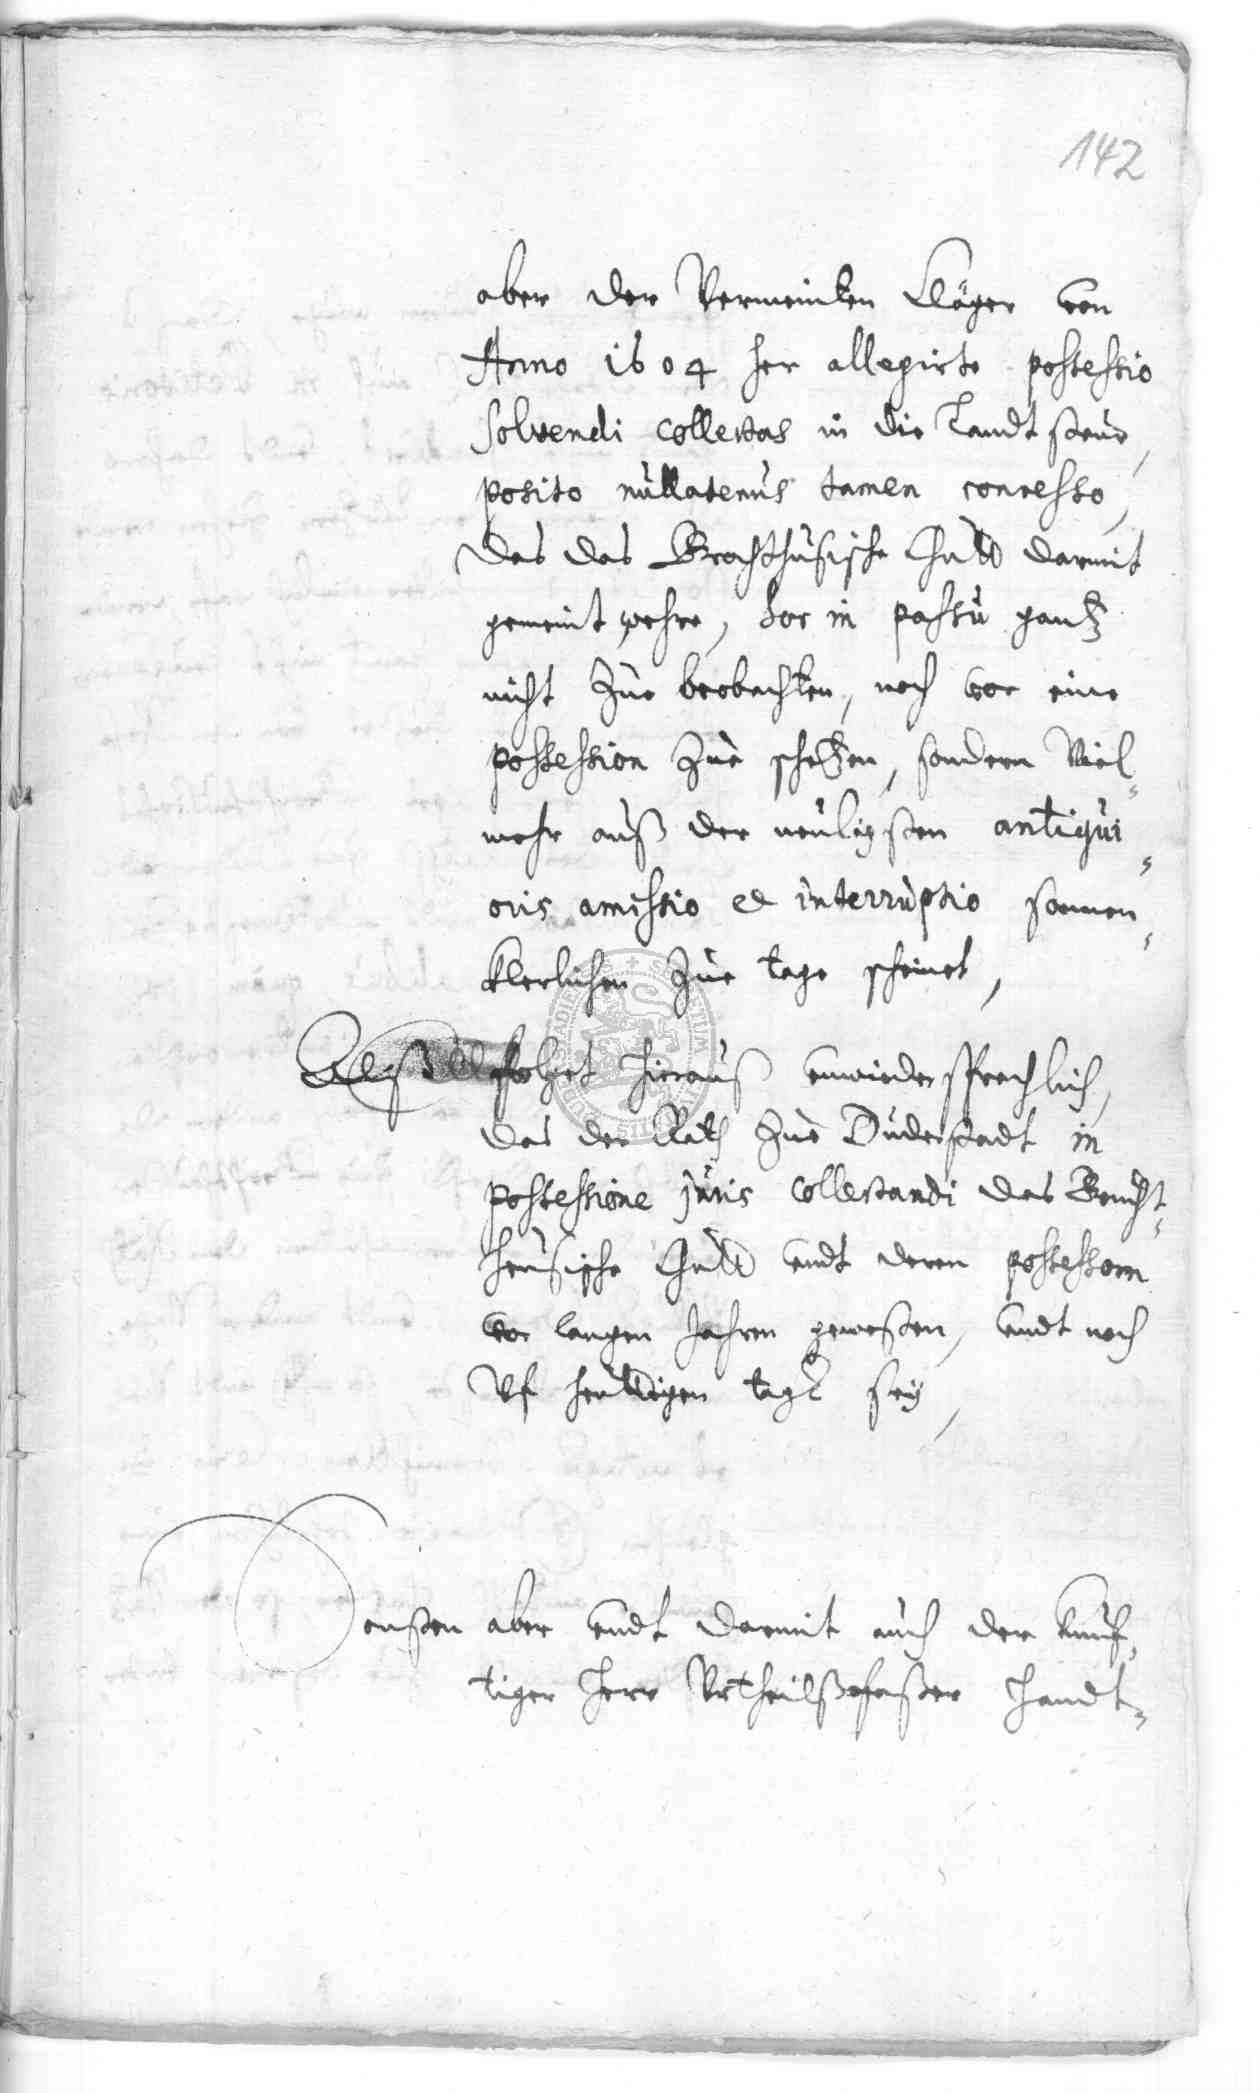 142
aber der Vermeinten Kläger von
Anno 1604 her allegirte possessio
solvendi collectas in die Landtsteur,
posito nullatenus tamen concesso,
das das Brochthusische Gutt darmit
gemeint wehre, hoc in passu gantz
nicht Zue beobachten, noch vor eine
possession Zue schetzen, sondern Viel-
mehr auß der neuligsten antiqui-
oris amissio et interruptio sonnen-
klerlichen Zue tage scheinet,
Alß folget hierauß unwiedersprechlich,
das der Rath Zue Duderstadt in
possessione juris collectandi das Brucht-
heusische Gutt undt deren possessorn
vor langen Jahren gewesen, undt noch
Vf heuttigen tagk sey,
Dessen aber undt darmit auch der künf-
tiger Herr Vrtheilßfasser handt-